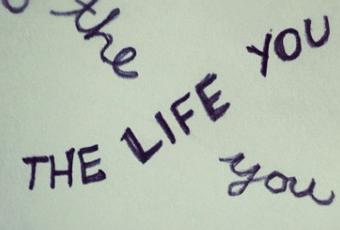 the
THE LIFE YOU
you